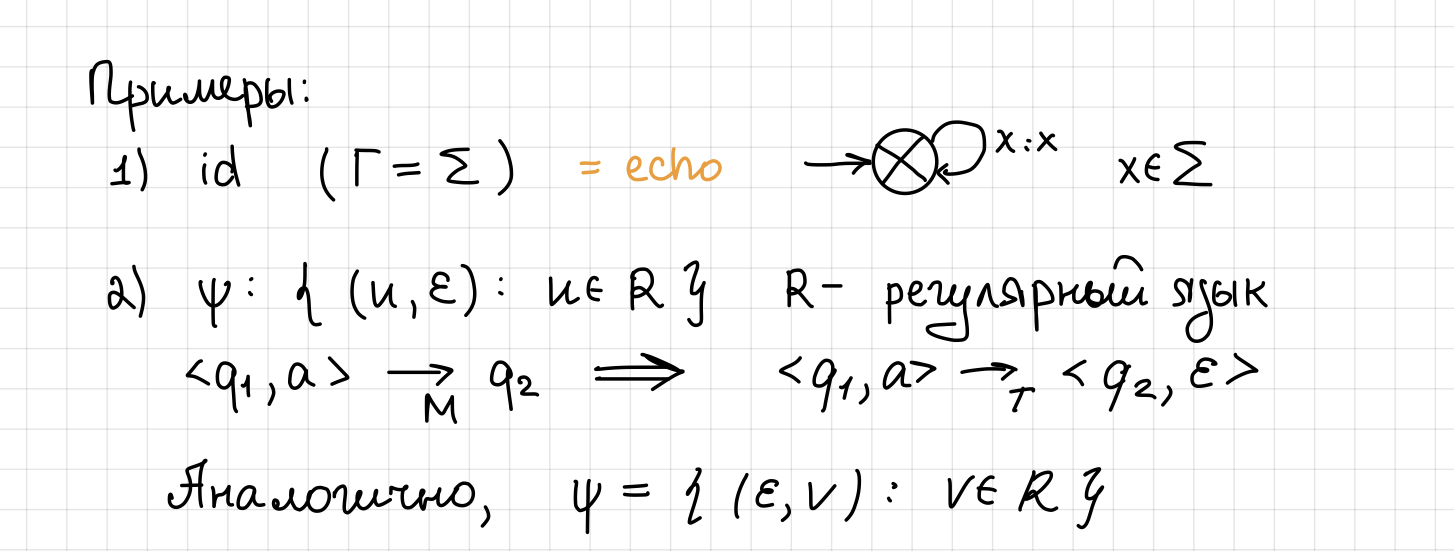 Примеры:
1) id (Γ = Σ) = echo x:x x∈Σ
2) ψ: { (u, ε) : u∈R } R - регулярный язык
<q₁, a> →_M q₂ ⟹ <q₁, a> →_T <q₂, ε>
Аналогично, ψ = { (ε, v) : v∈R }